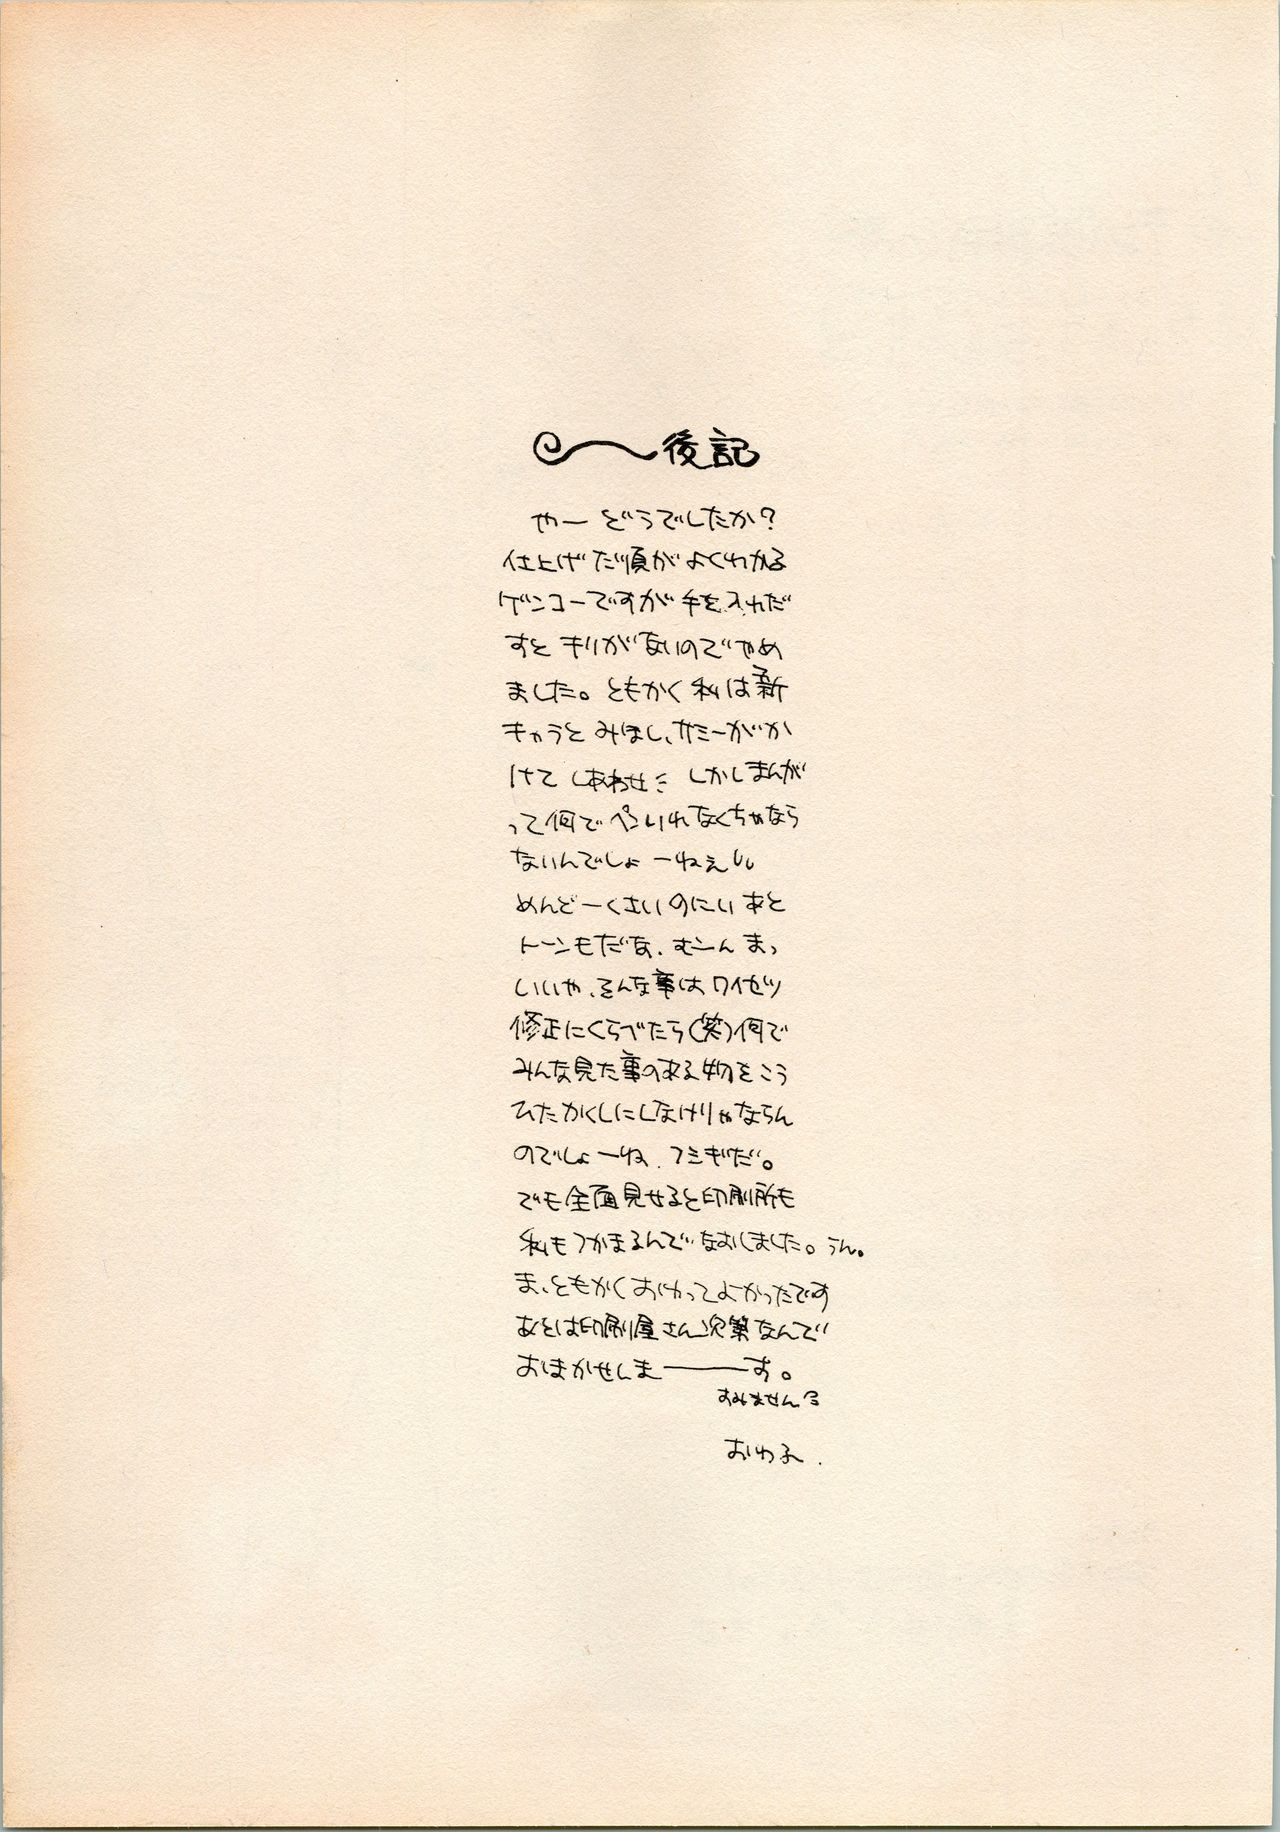 後記
やー どうでしたか?
仕上げた順がよくわかる
ゲンコーですが手を入れだ
すと キリがないのでやめ
ました。ともかく私は新
キャラとみほし、サミーがか
けて しあわせ しかしまんが
って何でペンいれなくちゃなら
ないんでしょーねぇ
めんどーくさいのにい あと
トーンもだな、むーん まっ
いいや、そんな事はワイセツ
修正にくらべたら(笑)何で
みんな見た事のある物をこう
ひたかくしにしなけりゃならん
のでしょーね、フシギだ。
でも全面見せると印刷所も
私もつかまるんでなおしました。うん。
ま、ともかくおわってよかったです
あとは印刷屋さん次第なんで
おまかせしまーーーす。
すみません